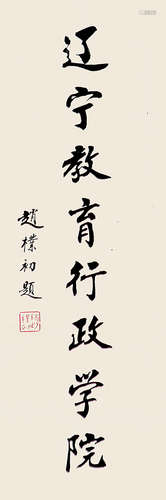 辽宁教育行政学院
趙樸初题